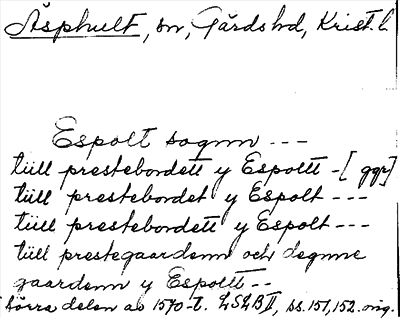 Åsphult, sn, Gärds hd, Krist. l.
Espolt sognn ---
tiill prestebordett y Espoltt -[ ggr]
tiill prestebordet y Espolt ---
tiill prestebordett y Espolt ---
tiill prestegaardenn och degnne
gaardenn y Espoltt --
förra delen av 1570-t. LSLB II, ss. 151, 152. orig.